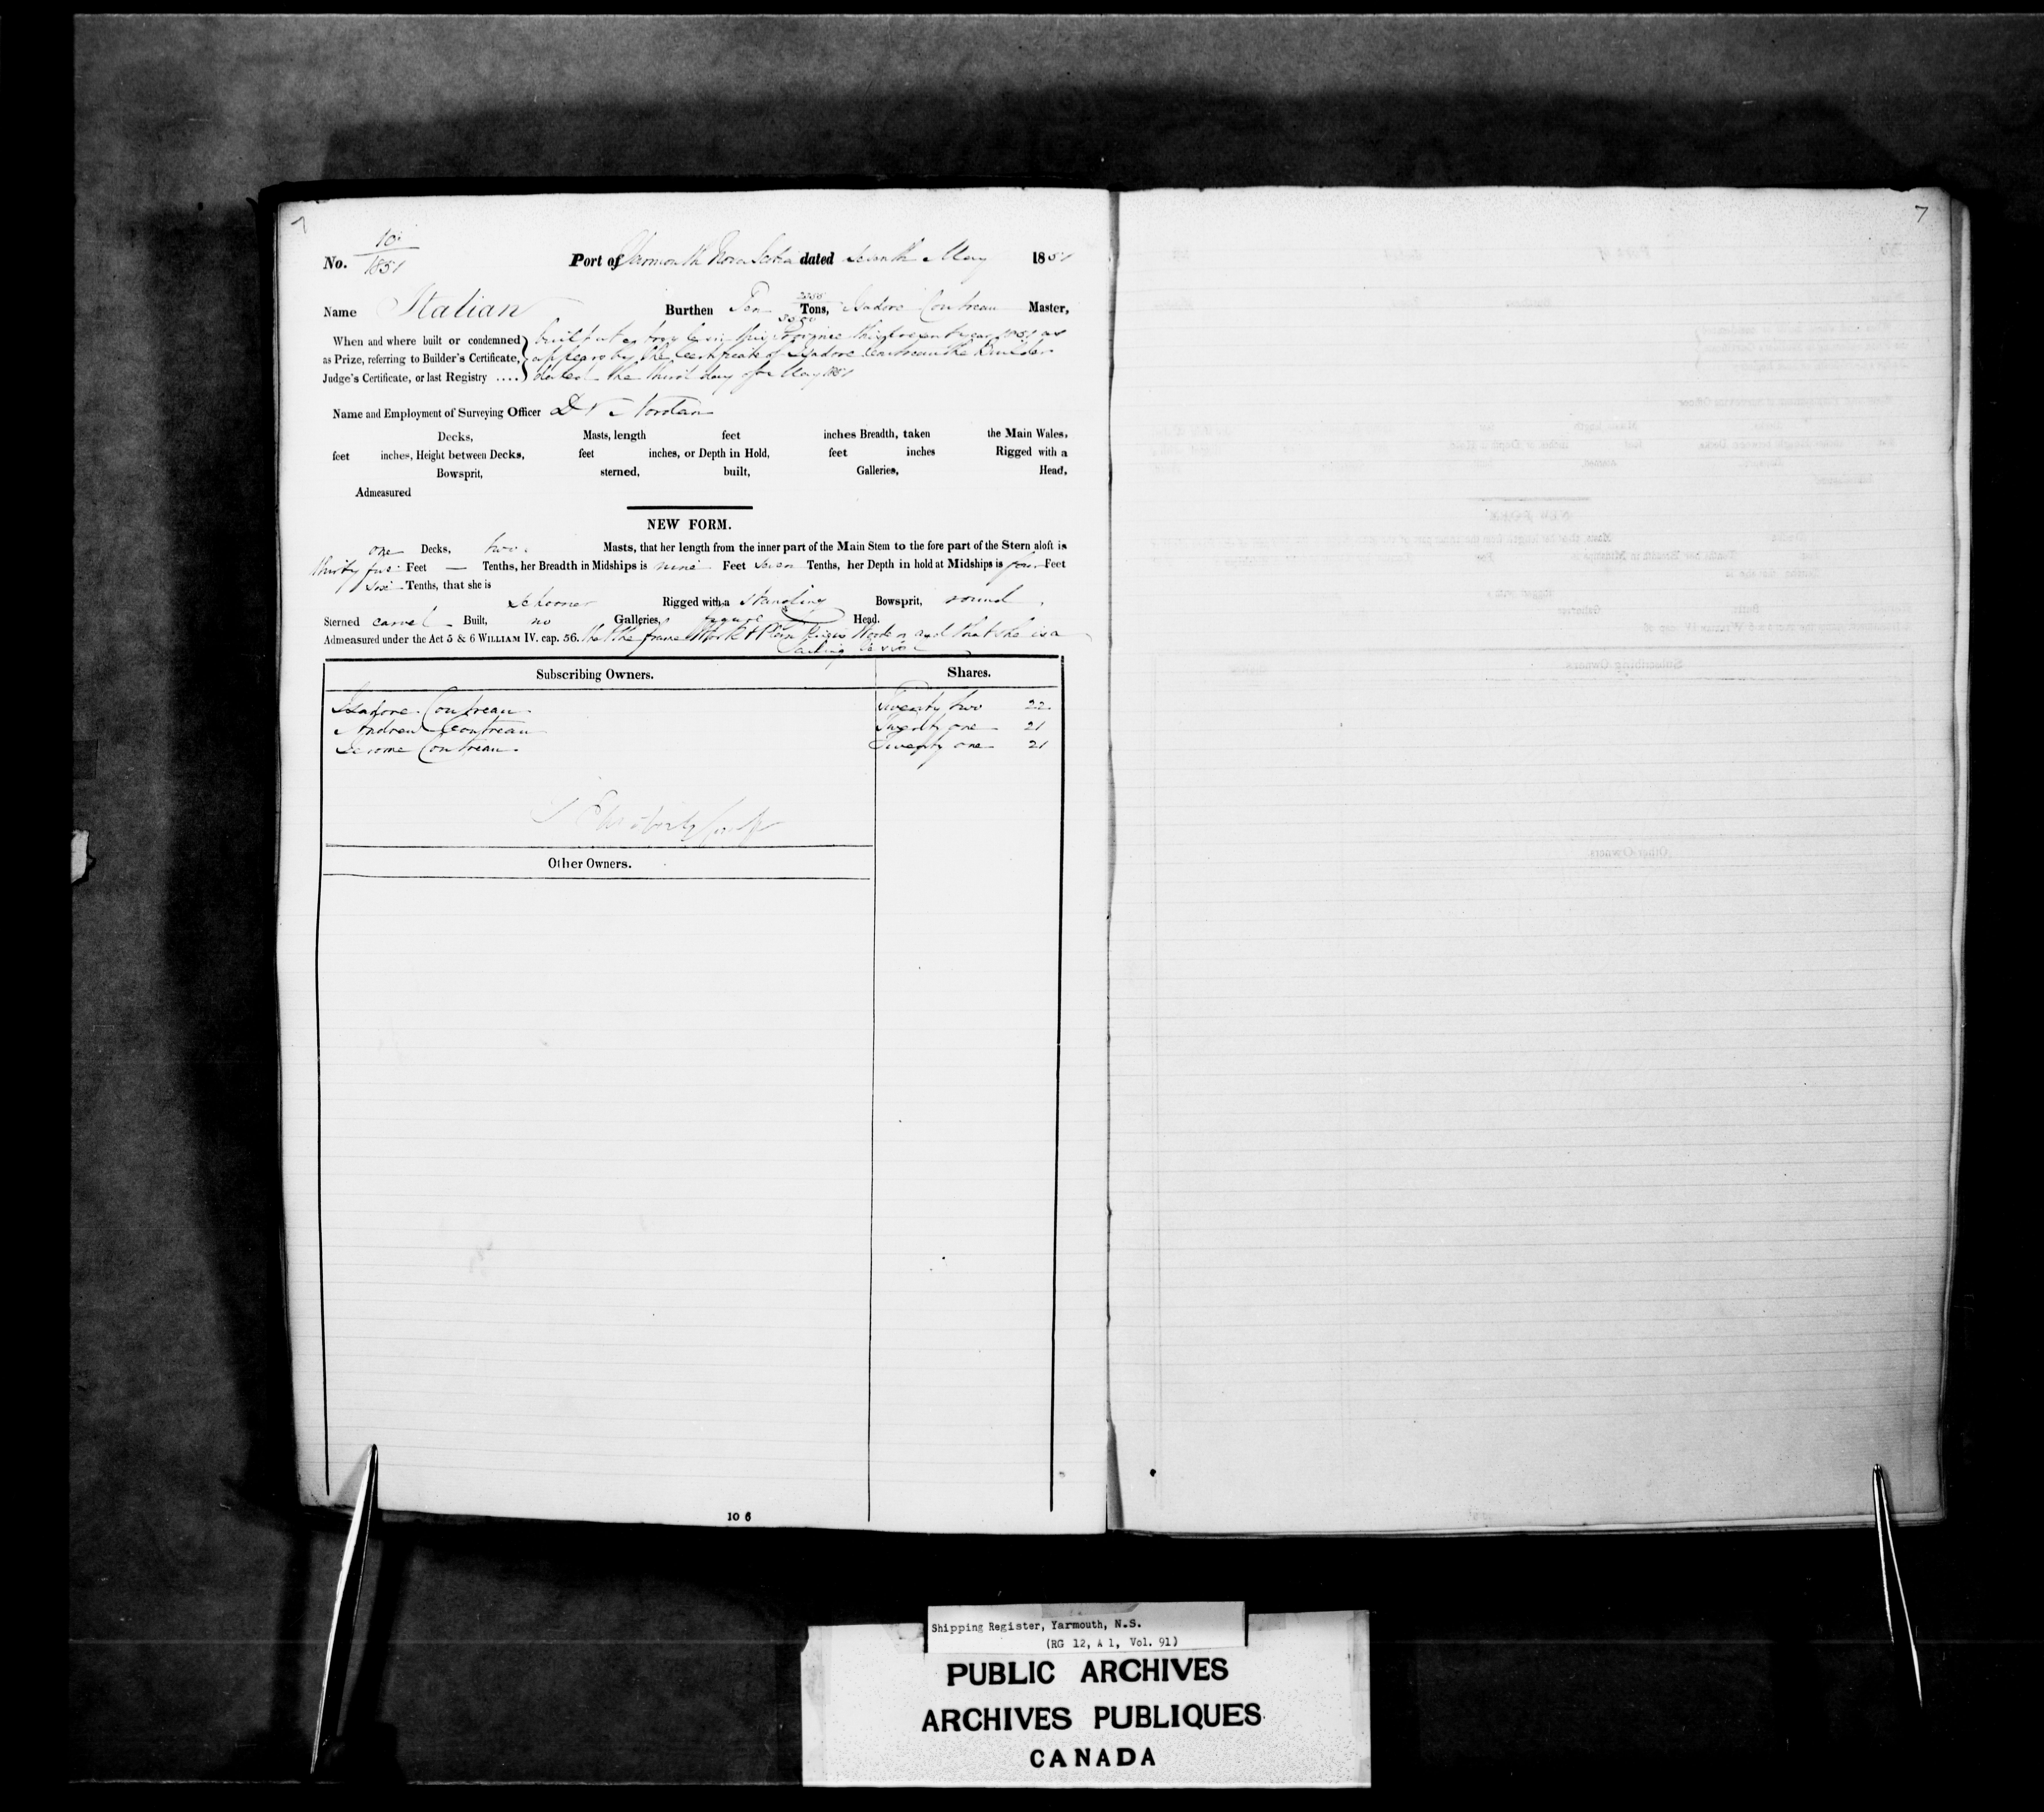 7
7
No. 10/1851 Port of Yarmouth Nova Scotia dated seventh May 1851
Name Italian Burthen Ten Tons, Isadore Coutreau Master,
When and where built or condemned
as Prize, referring to Builder's Certificate,
Judge's Certificate, or last Registry ....
built at in this Province this present year 1851 as
appears by the Certificate of Isadore Coutreau the Builder
dated the third day of May 1851
Name and Employment of Surveying Officer
Decks, Masts, length feet inches Breadth, taken the Main Wales,
feet inches, Height between Decks, feet inches, or Depth in Hold, feet inches Rigged with a
Bowsprit, sterned, built, Galleries, Head,
Admeasured
NEW FORM.
one Decks, two Masts, that her length from the inner part of the Main Stem to the fore part of the Stern aloft is
thirty five Feet — Tenths, her Breadth in Midships is nine Feet seven Tenths, her Depth in hold at Midships is four Feet
six Tenths, that she is
Schooner Rigged with a standing Bowsprit, round
Sterned carvel Built, no Galleries, figure Head.
Admeasured under the Act 5 & 6 WILLIAM IV. cap. 56. that the frame Work & Planking is Wooden and that she is a
Sailing Vessel
Subscribing Owners. Shares.
Isadore Coutreau Twenty two 22
Andrew Coutreau Twenty one 21
Jerome Coutreau Twenty one 21
Other Owners.
10 6
Shipping Register, Yarmouth, N.S.
(RG 12, A 1, Vol. 91)
PUBLIC ARCHIVES
ARCHIVES PUBLIQUES
CANADA